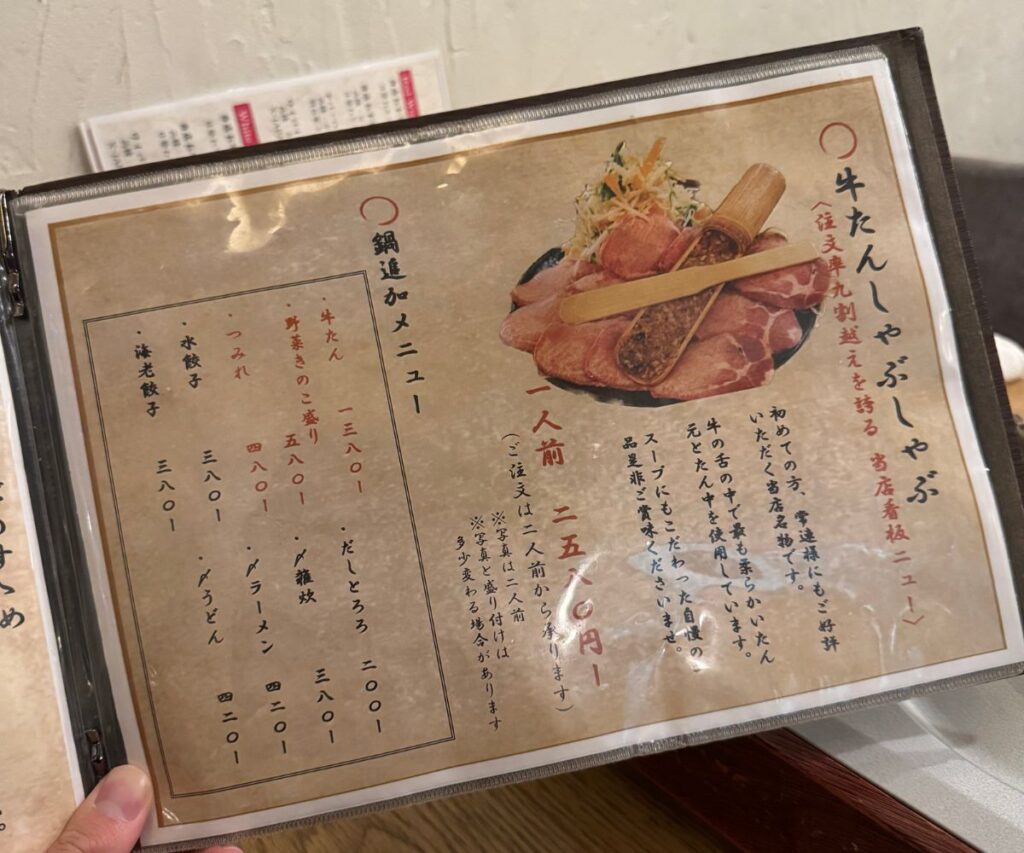 ○牛たんしゃぶしゃぶ
〈注文率九割越えを誇る 当店看板ニュー〉
初めての方、常連様にもご好評
いただく当店名物です。
牛の舌の中で最も柔らかいたん
元とたん中を使用しています。
スープにもこだわった自慢の
品是非ご賞味くださいませ。
一人前 二五八〇円ー
（ご注文は二人前から承ります）
※写真は二人前
※写真と盛り付けは
多少変わる場合があります
○鍋追加メニュー
・牛たん 一三八〇ー
・野菜きのこ盛り 五八〇ー
・つみれ 四八〇ー
・水餃子 三八〇ー
・海老餃子 三八〇ー
・だしとろろ 二〇〇ー
・〆雑炊 三八〇ー
・〆ラーメン 四二〇ー
・〆うどん 四二〇ー